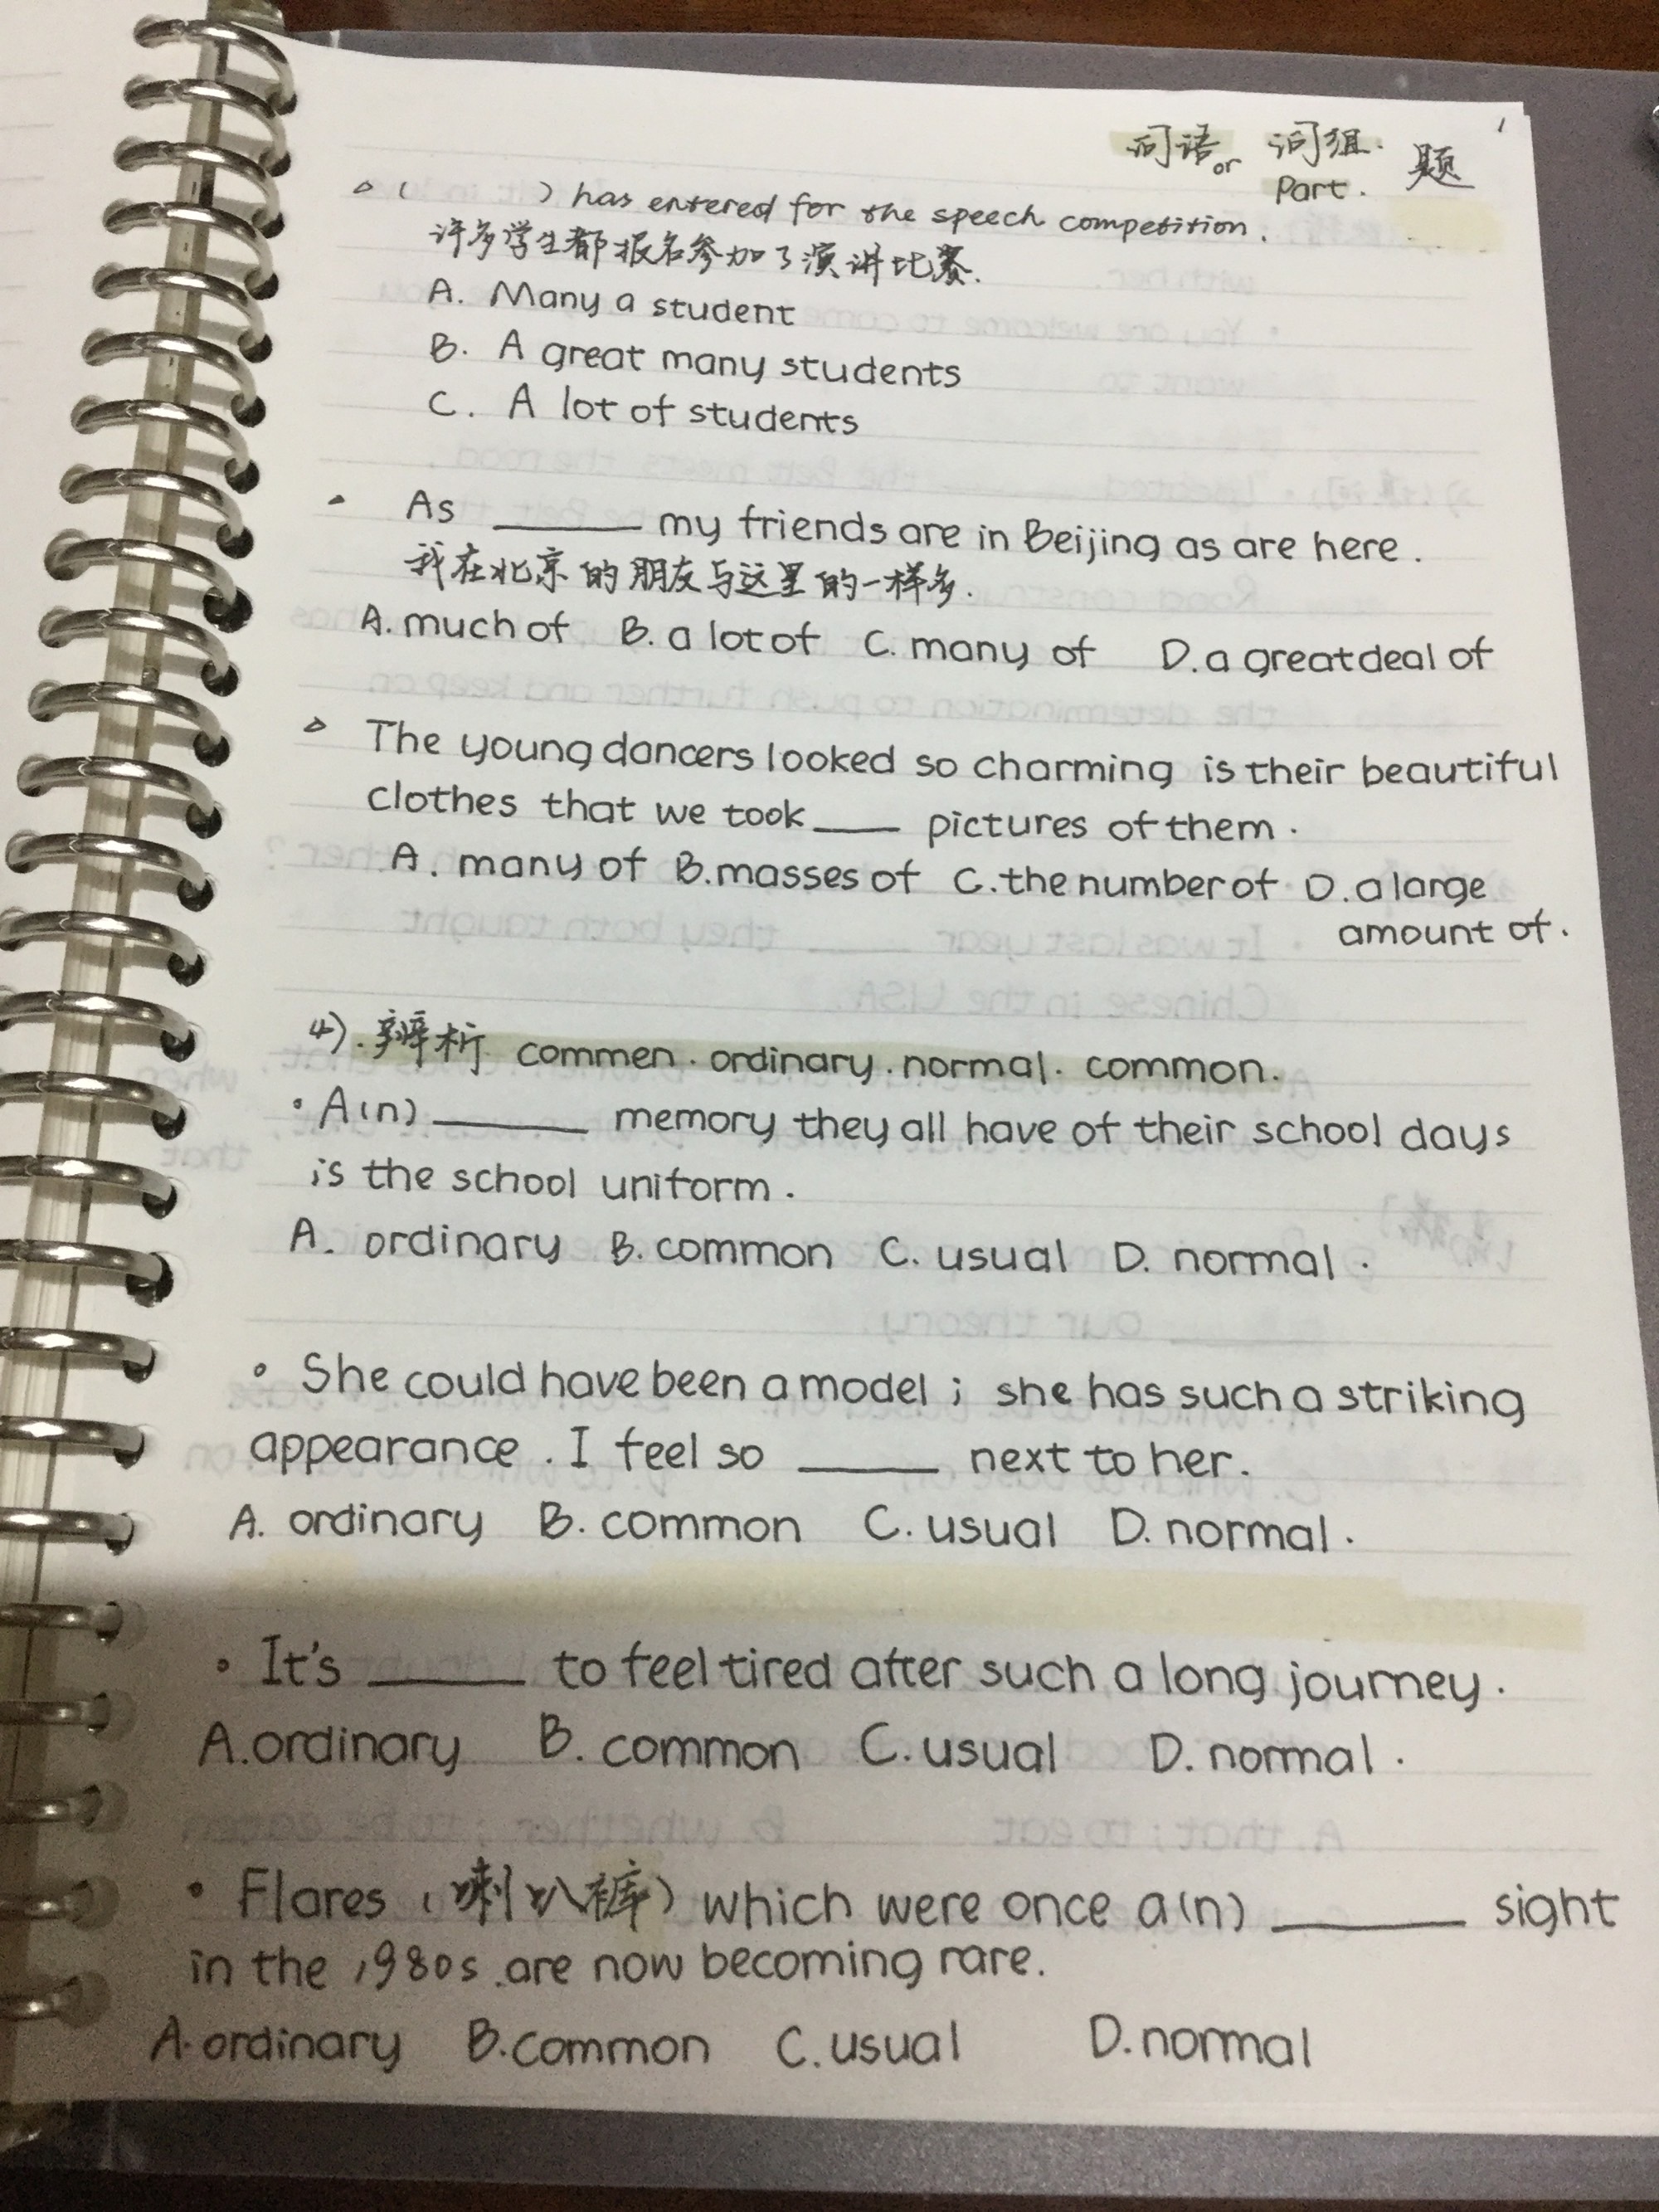 词语 or 词组. 题
Part.
( ) has entered for the speech competition.
许多学生都报名参加了演讲比赛.
A. Many a student
B. A great many students
C. A lot of students
As ____ my friends are in Beijing as are here.
我在北京的朋友与这里的一样多.
A. much of B. a lot of C. many of D. a great deal of
The young dancers looked so charming is their beautiful
clothes that we took ____ pictures of them.
A. many of B. masses of C. the number of D. a large
amount of.
4). 辨析 commen. ordinary. normal. common.
• A(n) ____ memory they all have of their school days
is the school uniform.
A. ordinary B. common C. usual D. normal.
• She could have been a model; she has such a striking
appearance. I feel so ____ next to her.
A. ordinary B. common C. usual D. normal.
• It's ____ to feel tired after such a long journey.
A. ordinary B. common C. usual D. normal.
• Flares (喇叭裤) which were once a(n) ____ sight
in the 1980s. are now becoming rare.
A. ordinary B. common C. usual D. normal